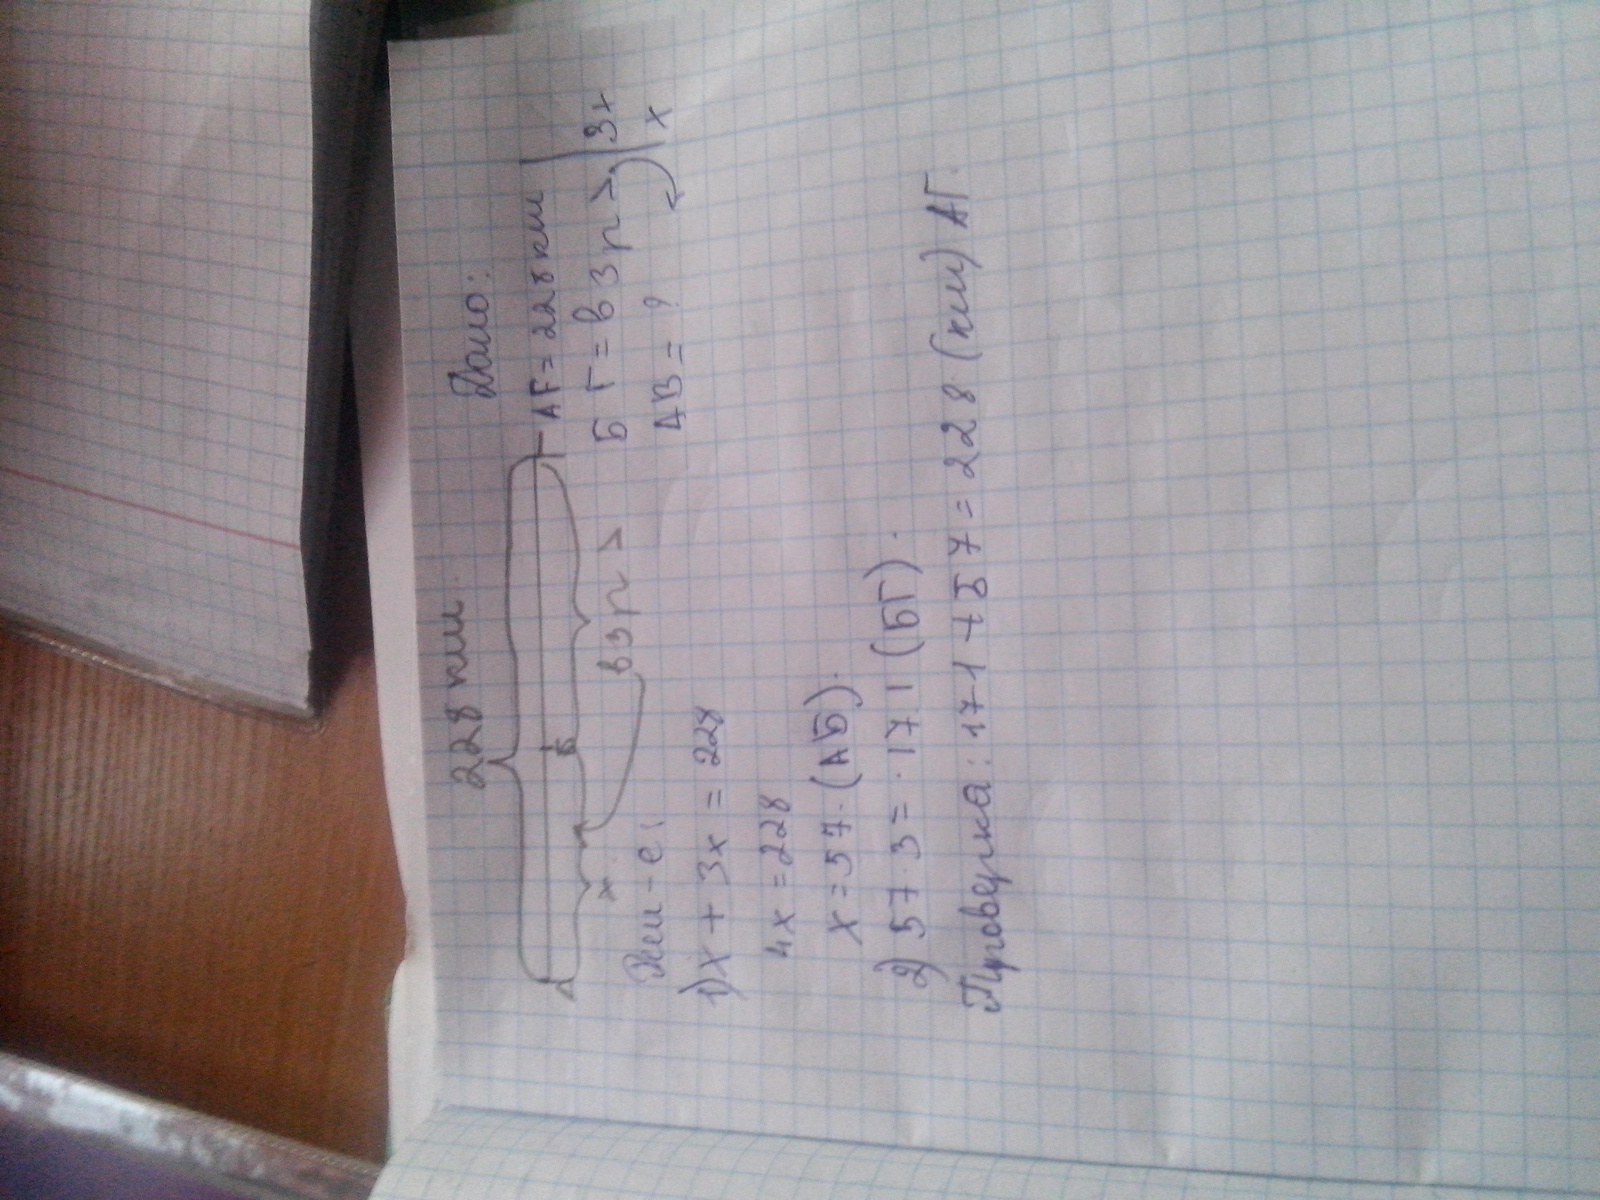 228 км
Дано:
АГ = 228 км
БГ = в 3 р > | 3х
АВ = ? | х
А Б Г
х в 3 р >
Реш-е:
1) х + 3х = 228
4х = 228
х = 57 (АБ).
2) 57 · 3 = 171 (БГ).
Проверка: 171 + 57 = 228 (км) АГ.